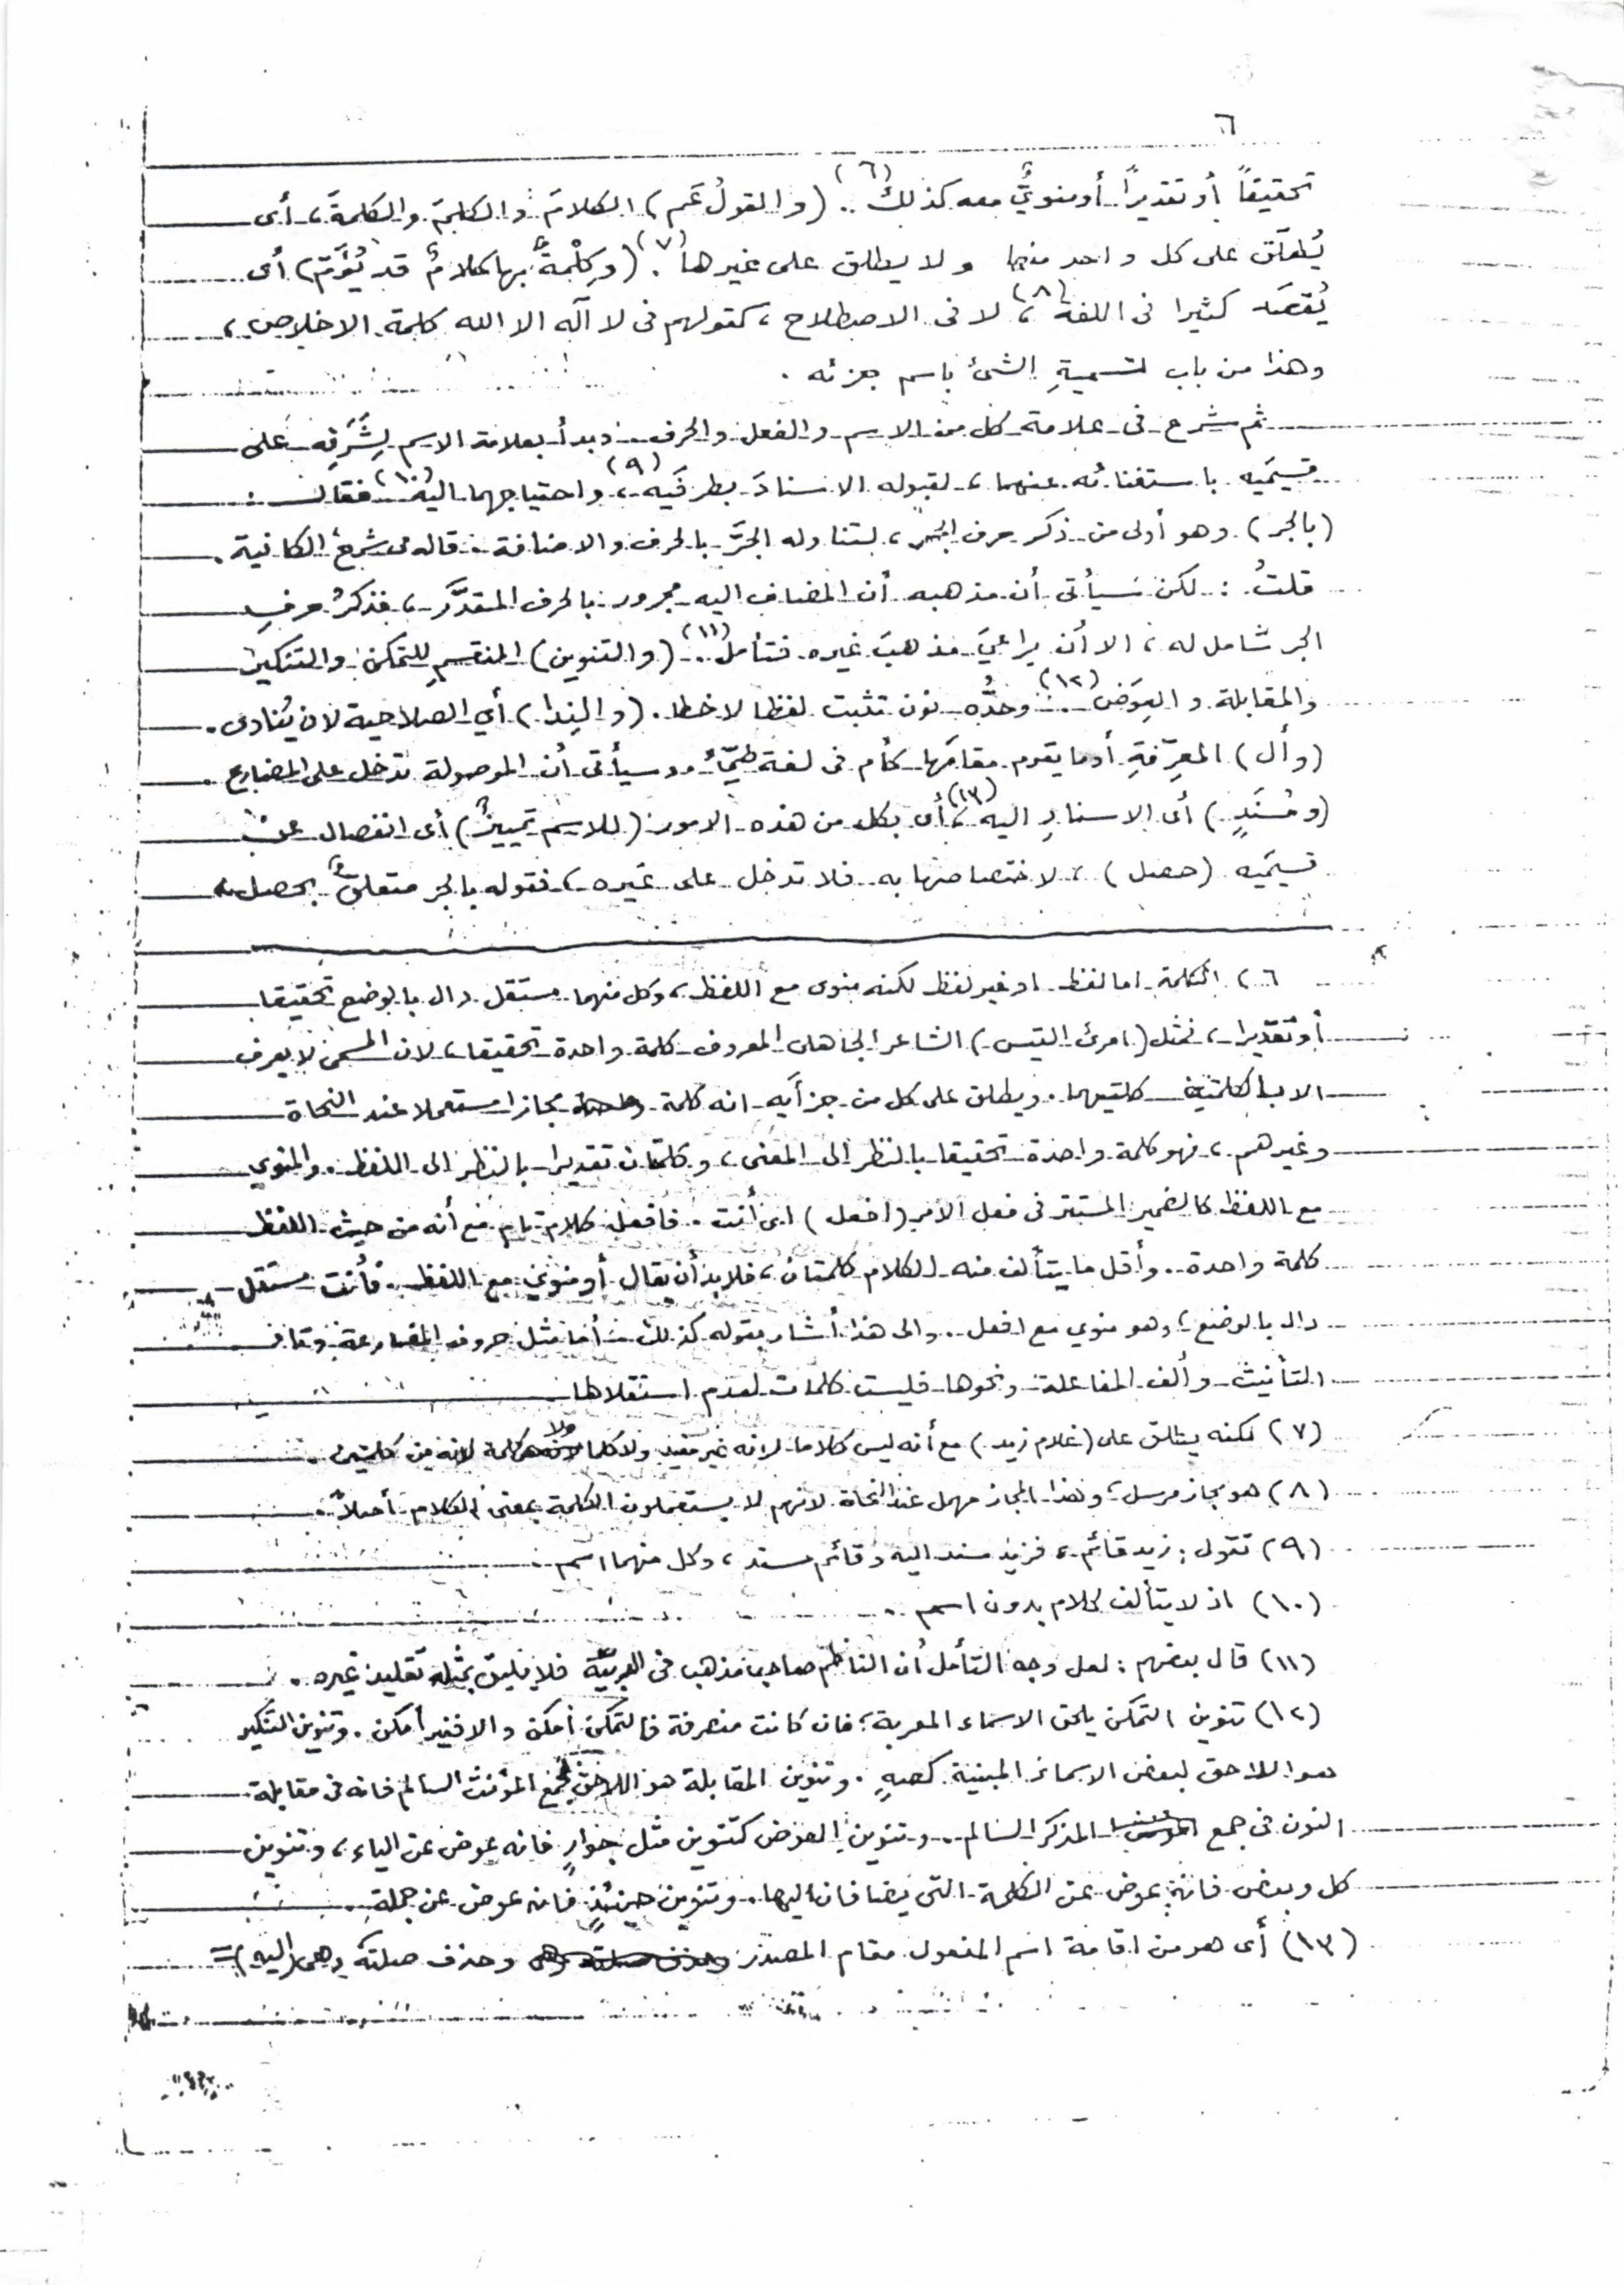 ٦
تحقيقاً أو تقديراً أو منويٌّ معه كذلك (٦) .. (والقولُ عَم) الكلامَ والكلِمَ والكلمةَ، أى
يُطلَق على كل واحد منها ولا يطلق على غيرها (٧) . (وكِلْمةٌ بها كلامٌ قد يُؤَم) أى
يُقصَد كثيرا فى اللغة (٨)، لا فى الاصطلاح، كقولهم فى لا آله الا الله كلمة الاخلاص،
وهذا من باب تسميةِ الشئ باسم جزئه .
ثم شرع فى علامة كل من الاسم والفعل والحرف .. وبدأ بعلامة الاسم لِشَرَفِه على
قسيمَيه باستغنائه عنهما، لقبوله الاسنادَ بطرفَيه (٩)، واحتياجهما اليه (١٠) فقال :
(بالجر) وهو أولى من ذكر حرف الجر، لتناوله الجرَّ بالحرف والاضافة .. قاله فى شرح الكافية .
قلتُ : لكن سَيأتى أن مذهبه أن المضاف اليه مجرور بالحرف المقدَّر، فذكرُ حرفِ
الجر شامل له، الا أن يراعيَ مذهبَ غيره فتأمل (١١) .. (والتنوين) المنقسمِ للتمكن والتنكير
والمقابلة والعِوَض (١٢) .. وحدُّه نون تثبت لفظا لا خطا . (والنِدا) أي الصلاحية لان يُنادى .
(وأل) المعرِّفةِ أو ما يقوم مقامَها كأم فى لغة طيّئ .. وسيأتى أن الموصولة تدخل على المضارع .
(ومُسنَدٍ) أى الاسنادِ اليه (١٣)، أى بكل من هذه الامور (للاسم تمييزٌ) أى انفصال عن
قسيمَيه (حصل)، لاختصاصها به فلا تدخل على غيره، فقوله بالجر متعلقٌ بحصل،
٦) الكلمة اما لفظ او غير لفظ لكنه منوى مع اللفظ، وكل منهما مستقل دال بالوضع تحقيقا
أو تقديرا، فمثل (امرئ القيس) الشاعر الجاهلى المعروف كلمة واحدة تحقيقا، لان المسمى لا يعرف
الا بالكلمتين كلتيهما . ويطلق على كل من جزأيه انه كلمة مجازا مستعملا عند النحاة
وغيرهم، فهو كلمة واحدة تحقيقا بالنظر الى المعنى، وكلمتان تقديرا بالنظر الى اللفظ . والمنوي
مع اللفظ كالضمير المستتر فى فعل الامر (افعل) اى أنت . فافعل كلام تام مع أنه من حيث اللفظ
كلمة واحدة .. وأقل ما يتألف منه الكلام كلمتان، فلا بد أن يقال أو منوي مع اللفظ . فأنت مستقل
دال بالوضع، وهو منوي مع افعل .. والى هذا أشار بقوله كذلك .. أما مثل حروف المضارعة وتاء
التأنيث وألف المفاعلة ونحوها فليست كلمات لعدم استقلالها
(٧) لكنه يطلق على (غلام زيد) مع أنه ليس كلاما لانه غير مفيد ولا كلما ولا كلمة لانه من كلمتين .
(٨) هو مجاز مرسل، وهذا المجاز مهمل عند النحاة لانهم لا يستعملون الكلمة بمعنى الكلام أصلاً .
(٩) تقول : زيد قائم، فزيد مسند اليه وقائم مسند، وكل منهما اسم .
(١٠) اذ لا يتألف كلام بدون اسم ..
(١١) قال بعضهم : لعل وجه التأمل أن الناظم صاحب مذهب فى العربيّة فلا يليق بمثله تقليد غيره .
(١٢) تنوين التمكن يلحق الاسماء المعربة، فان كانت منصرفة فالتمكن أمكن والا فغير أمكن . وتنوين التنكير
هو اللاحق لبعض الاسماء المبنية كصهٍ . وتنوين المقابلة هو اللاحق لجمع المؤنث السالم فانه فى مقابلة
النون فى جمع المذكر السالم .. وتنوين العوض كتنوين مثل جوارٍ فانه عوض عن الياء، وتنوين
كل وبعض فانه عوض عن الكلمة التى يضافان اليها . وتنوين حينئذٍ فانه عوض عن جملةٍ .
(١٣) أى هو من اقامة اسم المفعول مقام المصدر وحذف صلته وهى (اليه) =